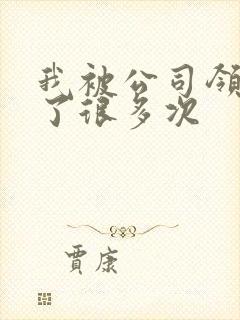 我被公司领
了很多次
贾康